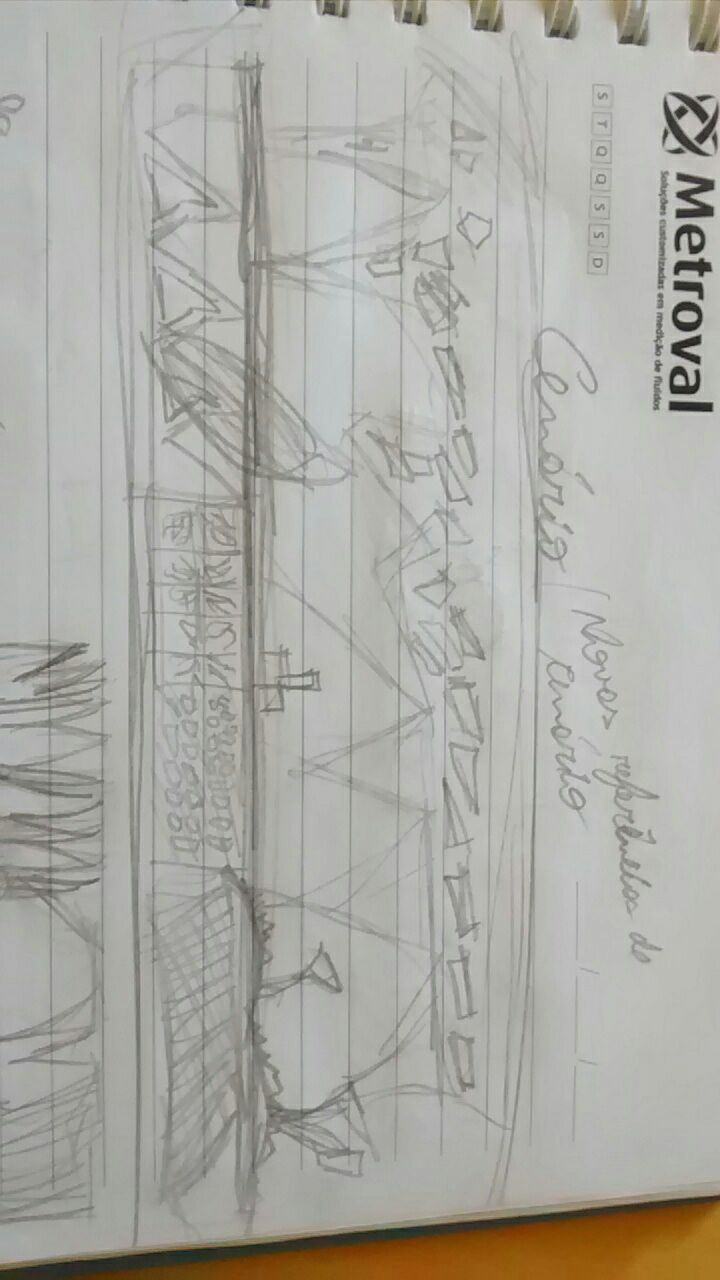 Metroval
Soluções customizadas em medição de fluidos
S T Q Q S S D
Cenário / Novas referências do
cenário